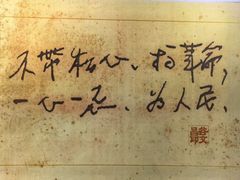 不带私心、搞革命，
一心一意、为人民。